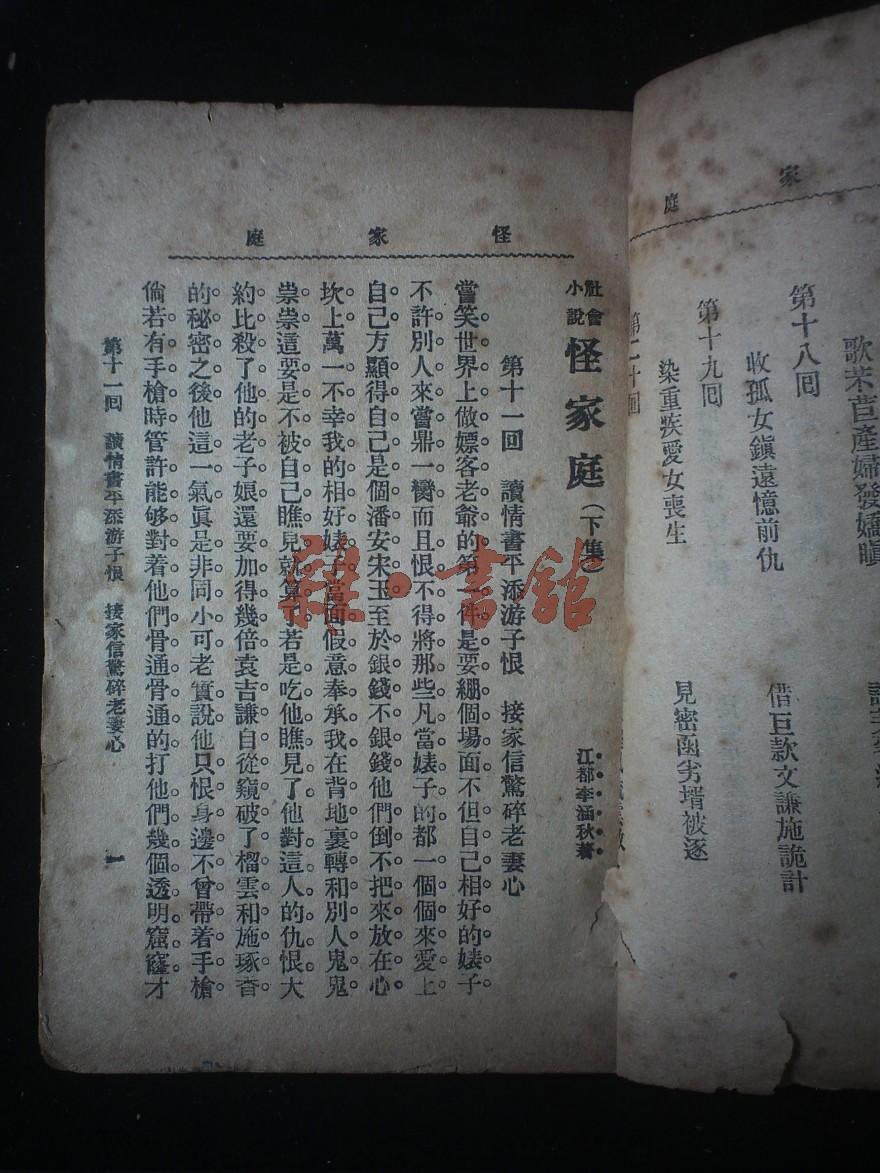 怪家庭
社會小說 怪家庭(下集)
江都李涵秋著
第十一回 讀情書平添游子恨 接家信驚碎老妻心
嘗笑世界上做嫖客老爺的第一件是要綳個場面不但自己相好的婊子
不許別人來嘗鼎一臠而且恨不得將那些凡當婊子的都一個個來愛上
自己方顯得自己是個潘安宋玉至於銀錢不銀錢他們倒不把來放在心
坎上萬一不幸我的相好婊子當面假意奉承我在背地裏轉和別人鬼鬼
祟祟這要是不被自己瞧見就算了若是吃他瞧見了他對這人的仇恨大
約比殺了他的老子娘還要加得幾倍袁吉謙自從窺破了榴雲和施琢杳
的秘密之後他這一氣眞是非同小可老實說他只恨身邊不曾帶着手槍
倘若有手槍時管許能够對着他們骨通骨通的打他們幾個透明窟窿才
第十一回 讀情書平添游子恨 接家信驚碎老妻心
一
家庭
歌芣苢產婦發嬌瞋
第十八回
收孤女鎭遠憶前仇 借巨款文謙施詭計
第十九回
染重疾愛女喪生 見密函劣壻被逐
第二十回
雜·書館